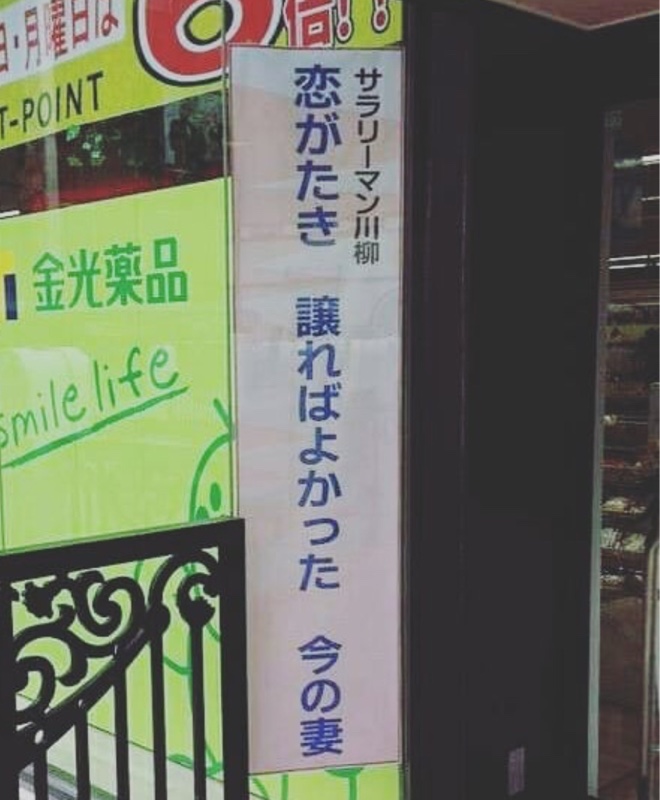 日・月曜日は 6倍!!
T-POINT
金光薬品
smile life
サラリーマン川柳
恋がたき 譲ればよかった 今の妻